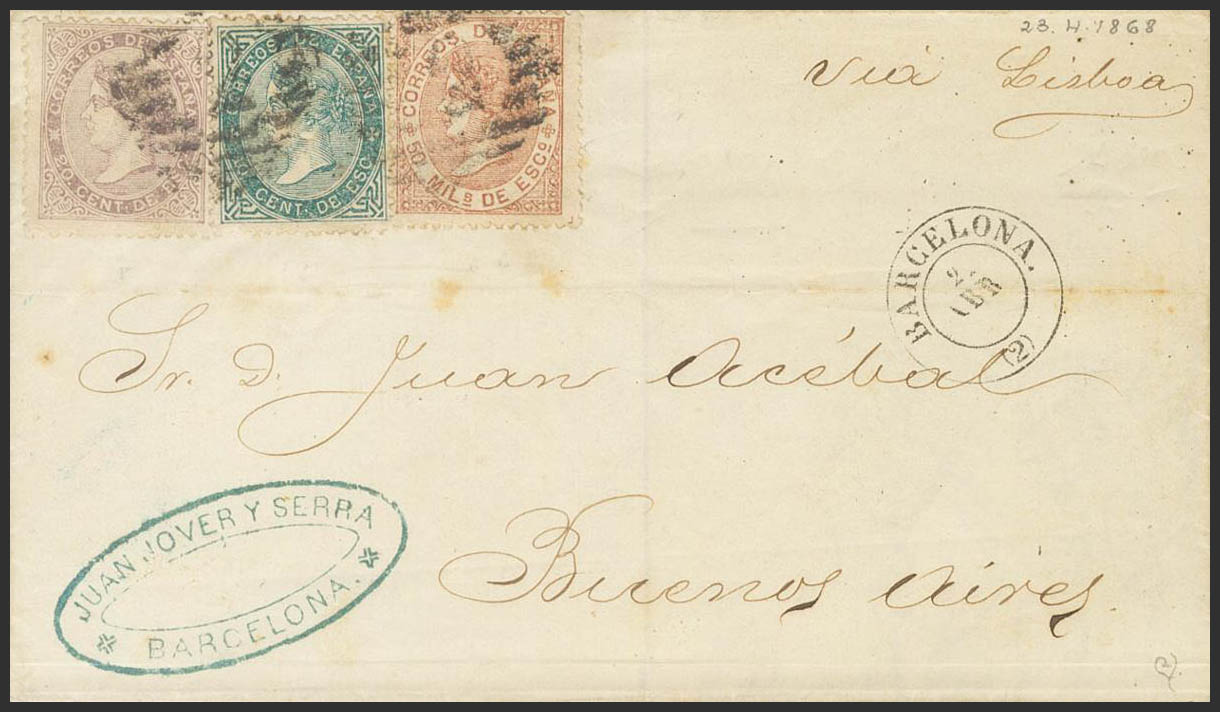 23.4.1868
Via Lisboa
CORREOS DE ESPAÑA
20 CENT. DE
CORREOS DE ESPAÑA
CENT. DE ESCO
CORREOS DE
50 MILS DE ESCO
BARCELONA.
ABR
(2)
Sr. D. Juan Acébal
Buenos Aires.
JUAN JOVER Y SERRA
BARCELONA.